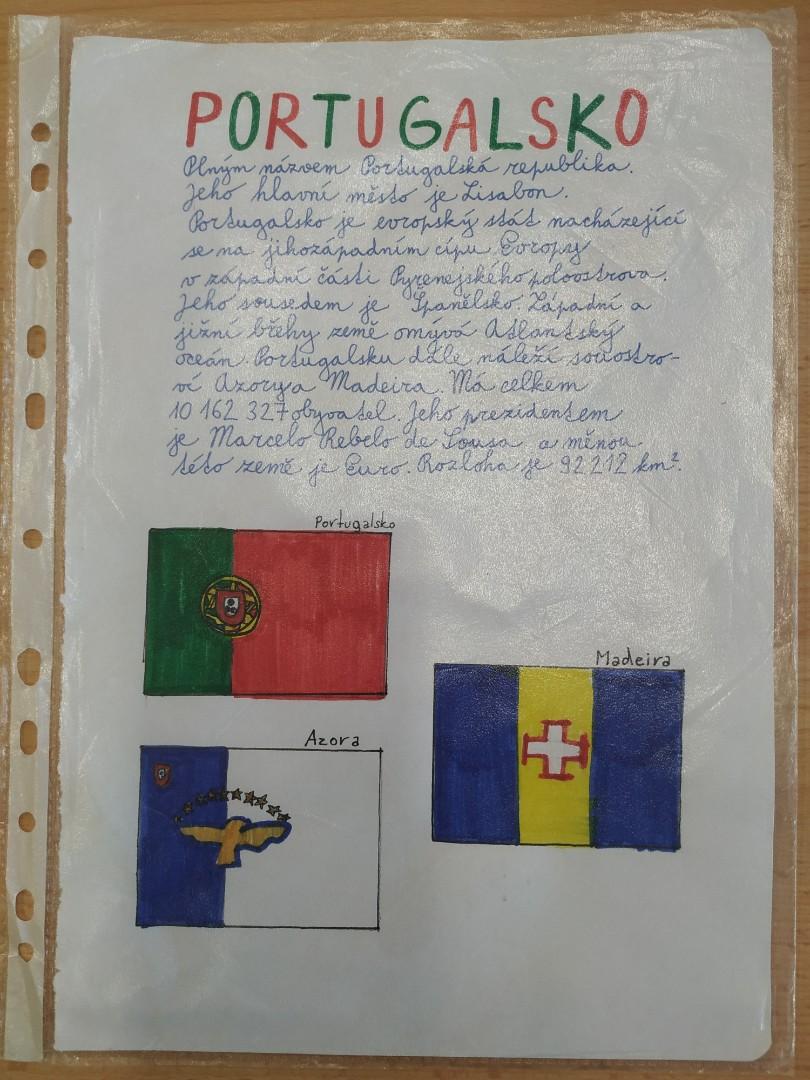 PORTUGALSKO
Plným názvem Portugalská republika.
Jeho hlavní město je Lisabon.
Portugalsko je evropský stát nacházející
se na jihozápadním cípu Evropy
v západní části Pyrenejského poloostrova.
Jeho sousedem je Španělsko. Západní a
jižní břehy země omývá Atlantský
oceán. Portugalsku dále náleží souostro-
ví Azory a Madeira. Má celkem
10 162 327 obyvatel. Jeho prezidentem
je Marcelo Rebelo de Sousa a měnou
této země je Euro. Rozloha je 92 212 km².
Portugalsko
Madeira
Azora